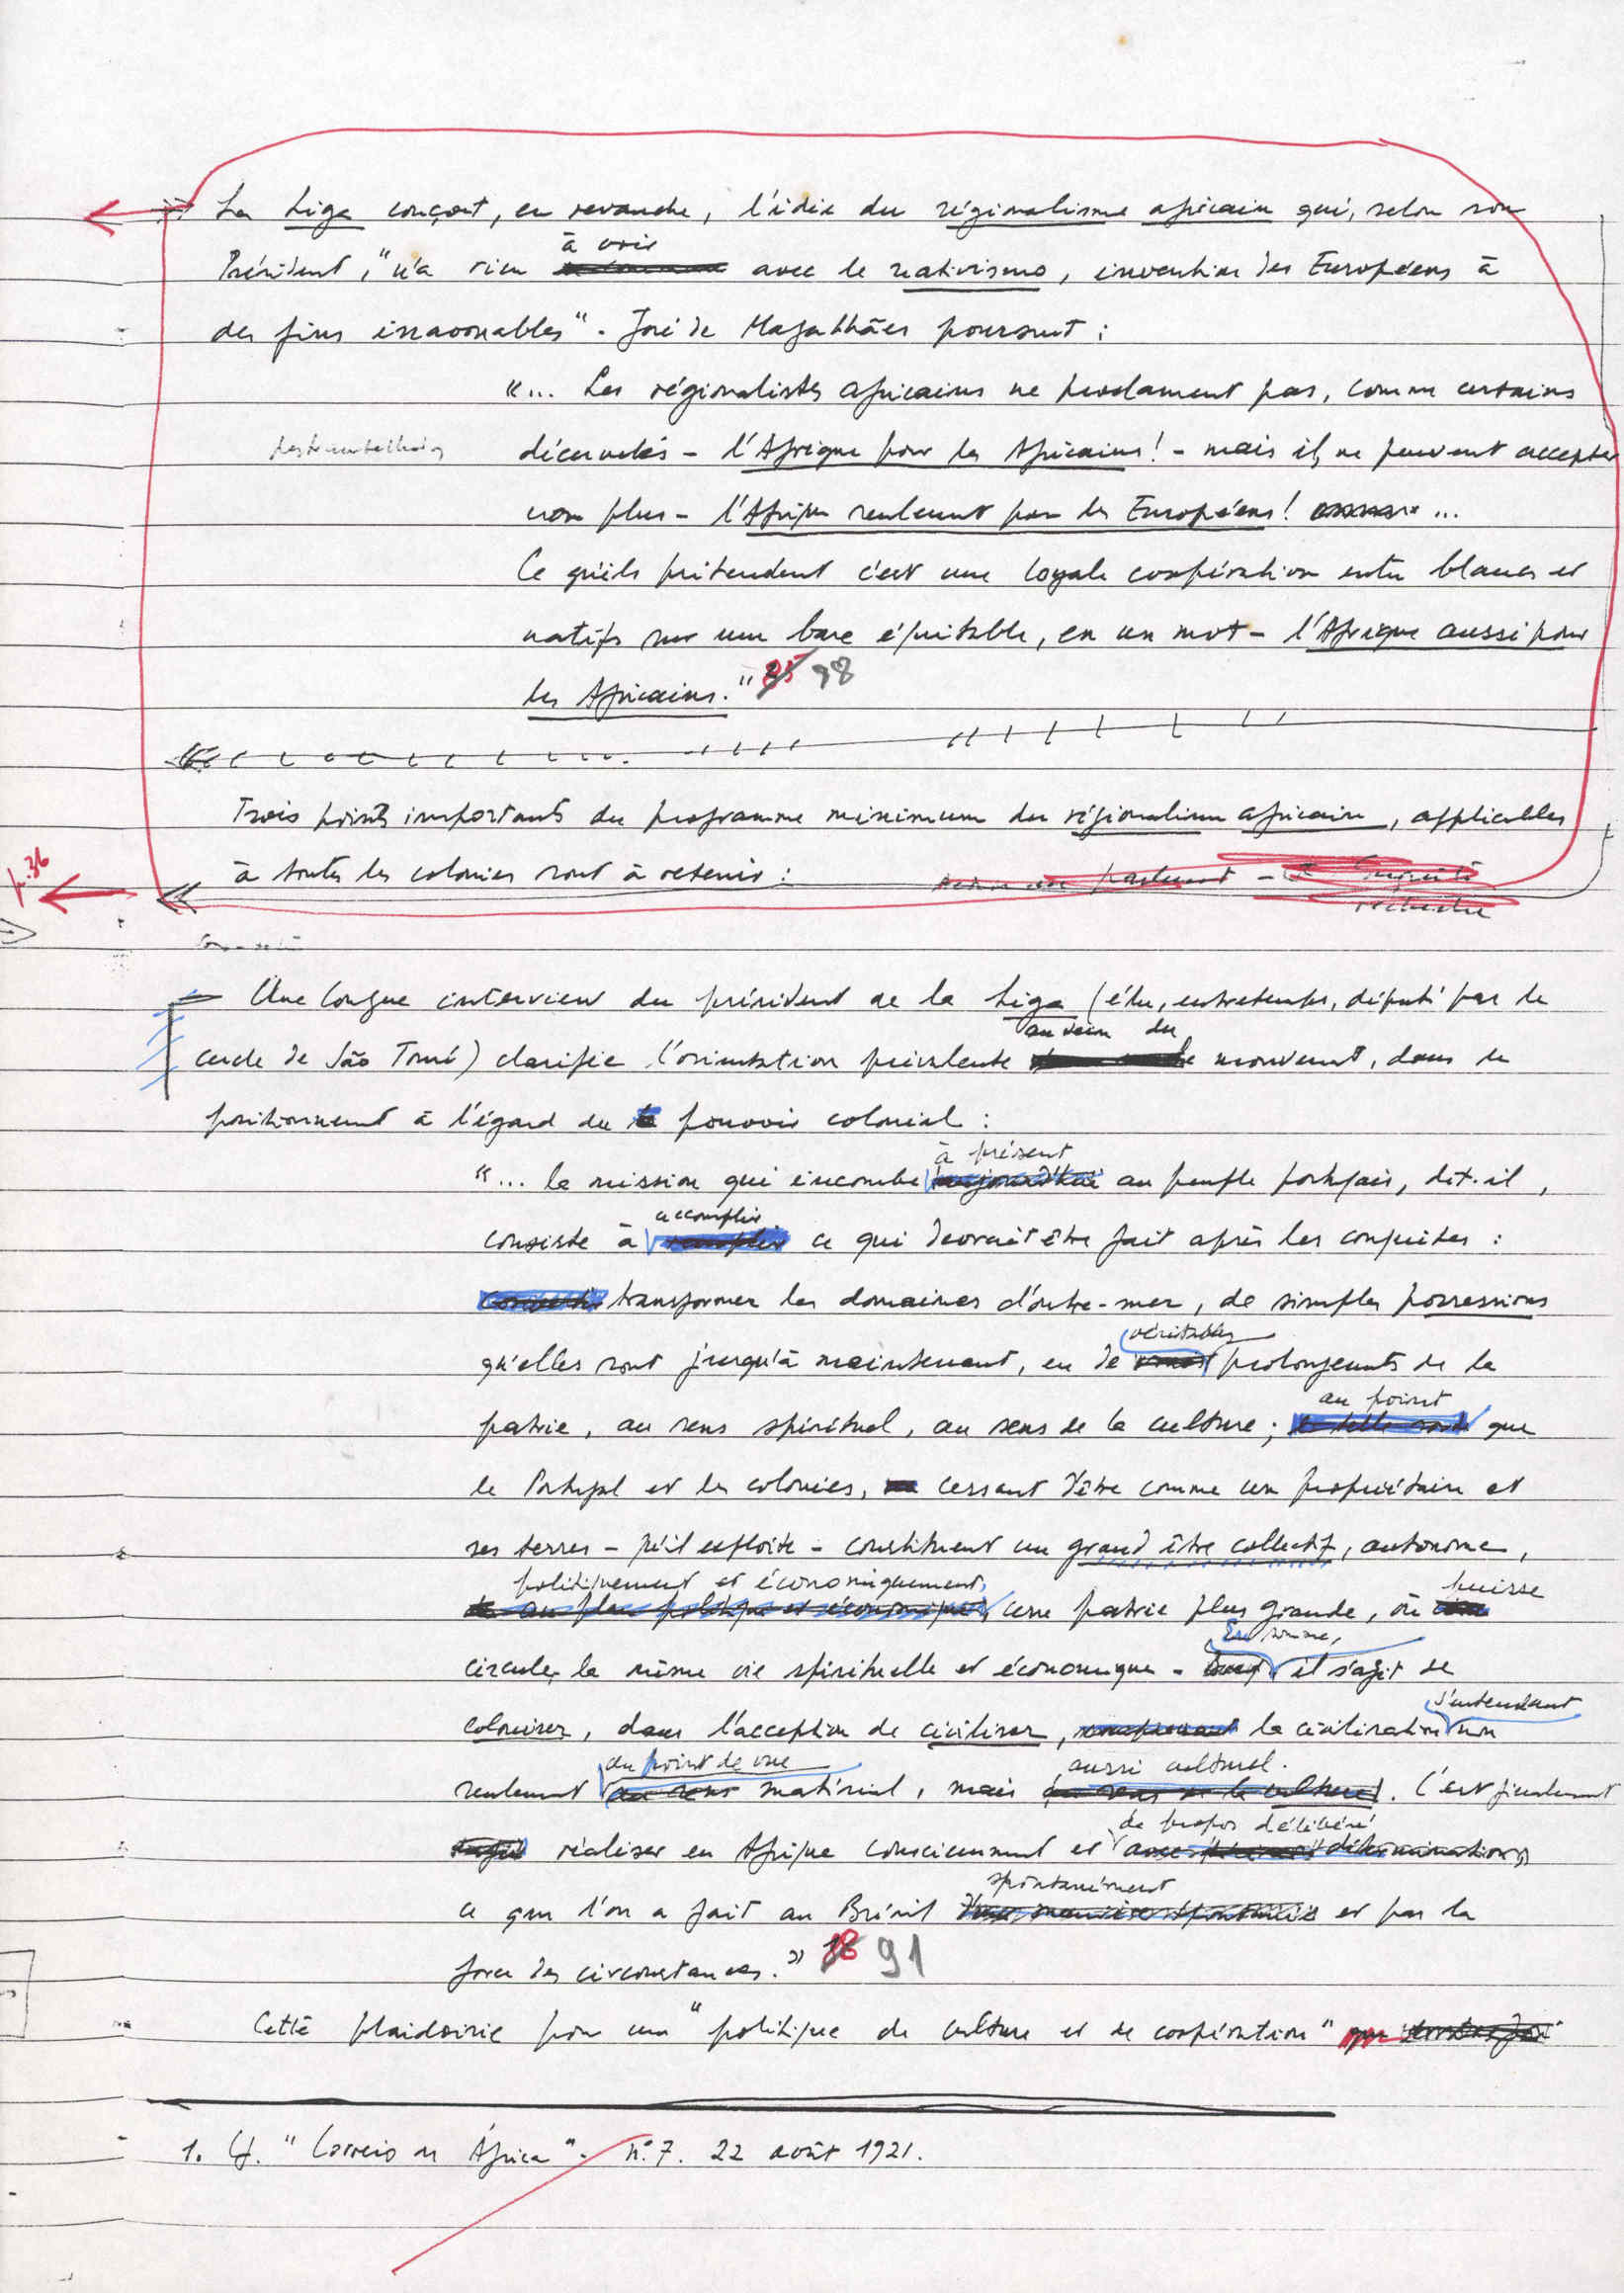 La Liga conçoit, en revanche, l'idée du régionalisme africain qui, selon son
à voir
Président, "n'a rien avec le nativismo, invention des Européens à
des fins inavouables". José de Magalhães poursuit :
"... Les régionalistes africains ne proclament pas, comme certains
décervelés - l'Afrique pour les Africains! - mais ils ne peuvent accepter
non plus - l'Afrique seulement pour les Européens! ...
Ce qu'ils prétendent c'est une loyale coopération entre blancs et
natifs sur une base équitable, en un mot - l'Afrique aussi pour
les Africains." 98
Trois points importants du programme minimum du régionalisme africain, applicables
p.36
à toutes les colonies sont à retenir :
Une longue interview du président de la Liga (élu, entretemps, député par le
au sein du
cercle de São Tomé) clarifie l'orientation prévalente mouvement, dans le
positionnement à l'égard du pouvoir colonial :
à présent
"... la mission qui incombe aujourd'hui au peuple portugais, dit-il,
accomplir
consiste à remplir ce qui devrait être fait après les conquêtes :
convertir transformer les domaines d'outre-mer, de simples possessions
véritables
qu'elles sont jusqu'à maintenant, en de vrais prolongements de la
au point
patrie, au sens spirituel, au sens de la culture; de telle sorte que
le Portugal et les colonies, cessant d'être comme un propriétaire et
ses terres - qu'il exploite - constituent un grand être collectif, autonome,
politiquement et économiquement, puisse
au plan politique et économique, une patrie plus grande, où
En somme,
circuler la même vie spirituelle et économique - il s'agit de
s'entendant
coloniser, dans l'acception de civiliser, comprenant la civilisation non
au point de vue aussi culturel.
seulement au sens matériel, mais au sens de la culture. C'est finalement
de propos délibéré
réaliser en Afrique consciemment et avec détermination,
spontanément
ce que l'on a fait au Brésil d'une manière spontanée et par la
force des circonstances." 91
Cette plaidoirie pour une "politique de culture et de coopération" que
1. Cf. "Correio de África". nº 7. 22 août 1921.